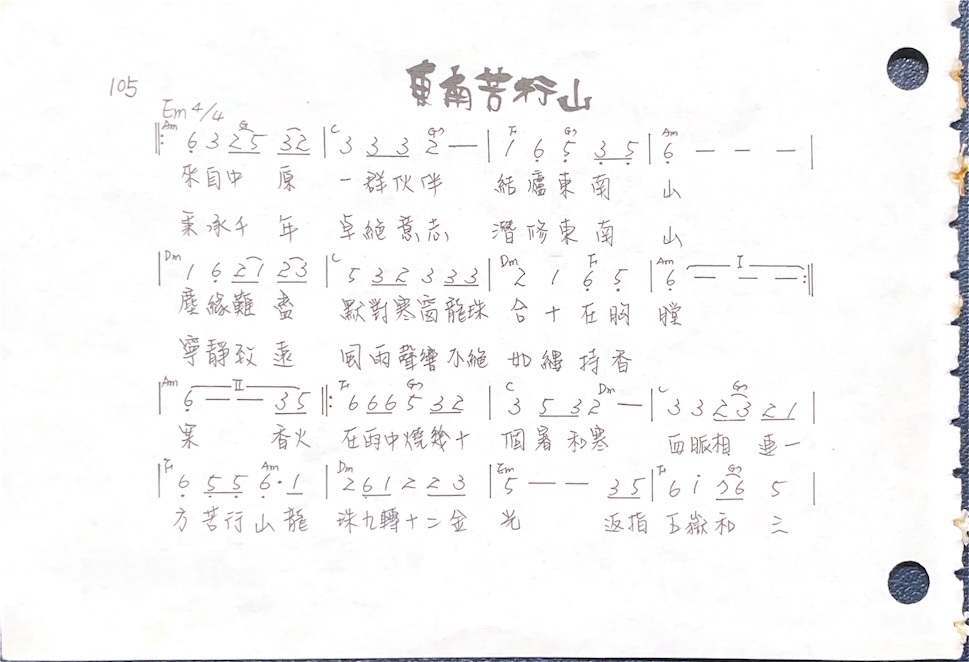 105
東南苦行山
Em 4/4
Am G C G7 F G7 Am
‖: 6 3 2 5 3 2 | 3 3 3 2 — | 1 6 5 3 5 | 6 — — — |
來自中 原 一群伙伴 結廬東南 山
秉承千 年 卓絕意志 潛修東南 山
Dm C Dm F Am I
| 1 6 2 1 2 3 | 5 3 2 3 3 3 | 2 1 6 5 | 6 — — — :‖
塵緣難 盡 默對寒窗龍珠 合十在胸 膛
寧靜致遠 風雨聲聲不絕 如縷持香
Am II F G7 C Dm C G7
| 6 — — 3 5 ‖: 6 6 6 5 3 2 | 3 5 3 2 — | 3 3 2 3 2 1 |
案 香火 在雨中燒幾十 個暑和寒 血脈相 連一
F Am Dm Em F G7
| 6 5 5 6 · 1 | 2 6 1 2 2 3 | 5 — — 3 5 | 6 i 7 6 5 |
方苦行山龍 珠九轉十二金 光 返指五嶽和 三